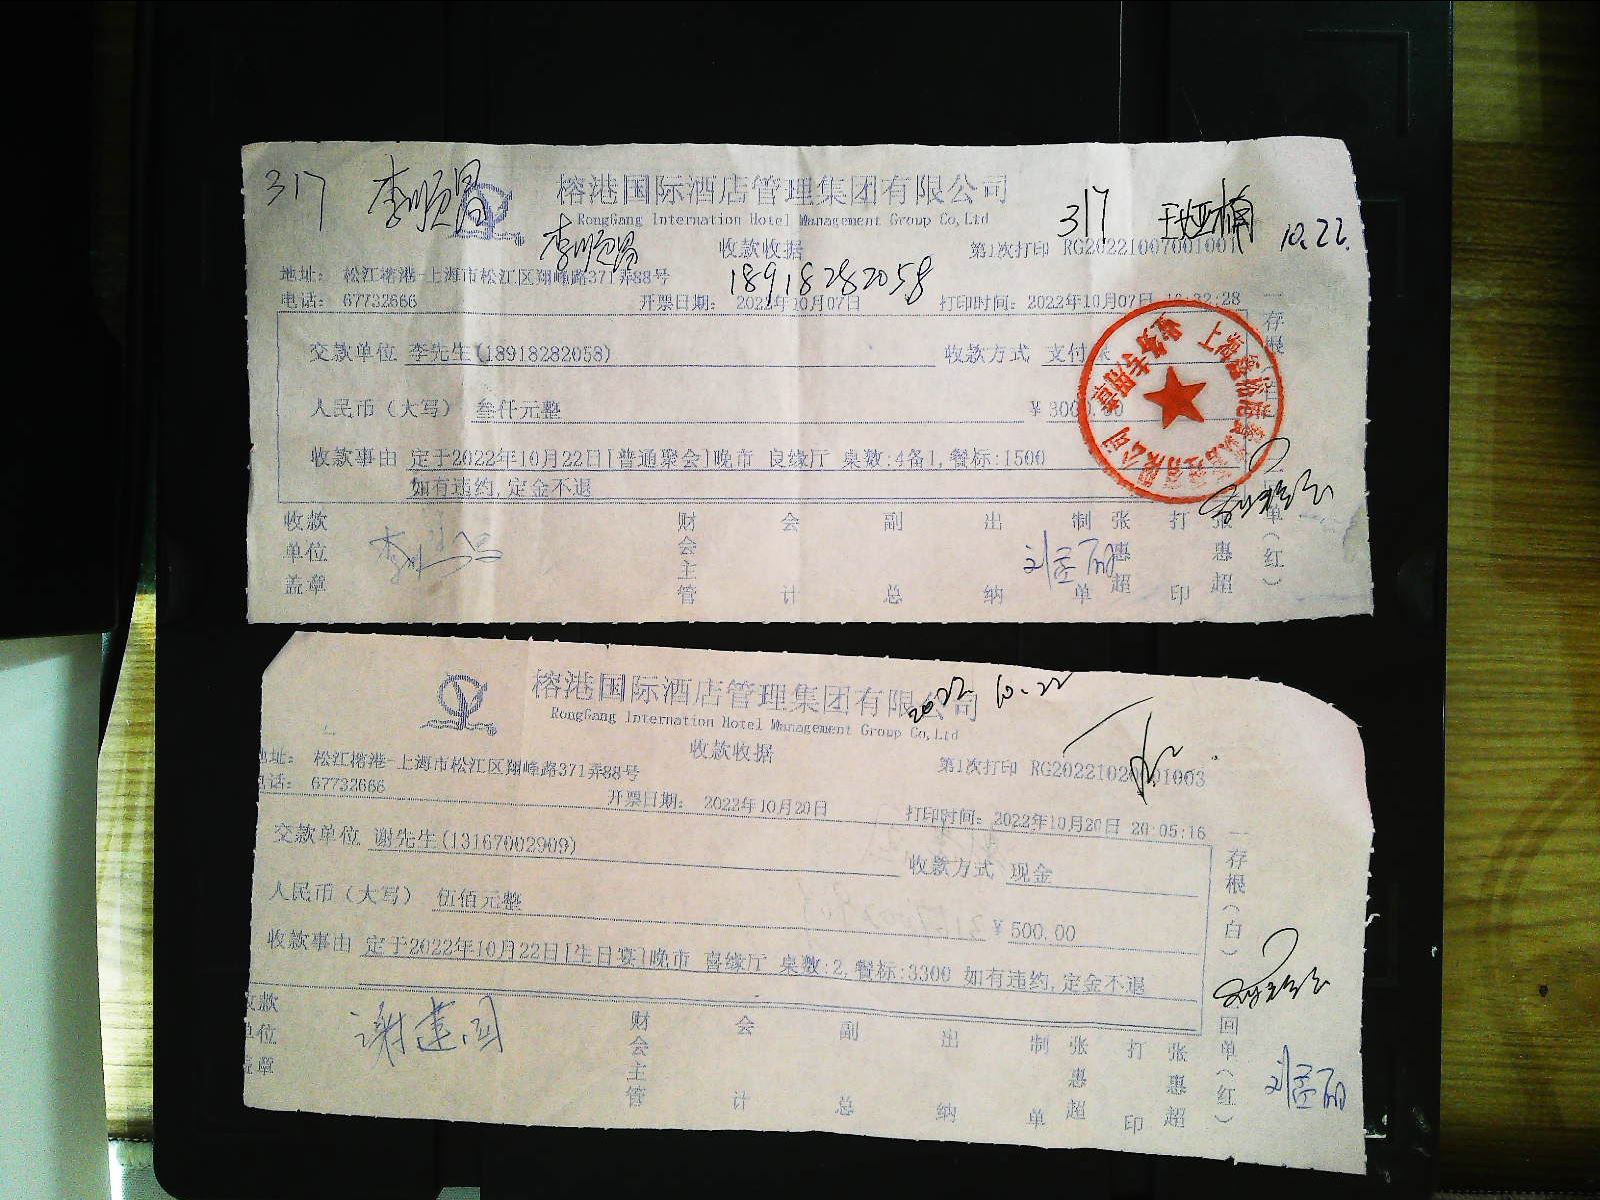 317 李顺昌 榕港国际酒店管理集团有限公司
RongGang Internation Hotel Management Group Co,Ltd 317 10.22.
李顺昌 收款收据 第1次打印 RG20221007001001
地址： 松江榕港-上海市松江区翔峰路371弄88号 18918282058
电话： 67732666 开票日期： 2022年10月07日 打印时间：2022年10月07日
交款单位 李先生(18918282058) 收款方式 支付
人民币（大写） 叁仟元整 ￥3000.00
收款事由 定于2022年10月22日[普通聚会]晚市 良缘厅 桌数:4备1,餐标:1500
如有违约,定金不退
收款单位盖章 财会主管 会计 副总 出纳 制单 张惠超 打印 张惠超
刘孟丽
业务专用章
榕港国际酒店管理集团有限公司
RongGang Internation Hotel Management Group Co,Ltd
2022.10.22
收款收据 第1次打印
地址： 松江榕港-上海市松江区翔峰路371弄88号
电话： 67732666 开票日期： 2022年10月20日 打印时间：2022年10月20日 20:05:16
交款单位 谢先生(13167002909) 收款方式 现金
人民币（大写） 伍佰元整 ￥500.00
收款事由 定于2022年10月22日[生日宴]晚市 喜缘厅 桌数:2,餐标:3300 如有违约,定金不退
收款单位盖章 谢建国 财会主管 会计 副总 出纳 制单 张惠超 打印 张惠超
一存根（白） 回单（红）
刘孟丽